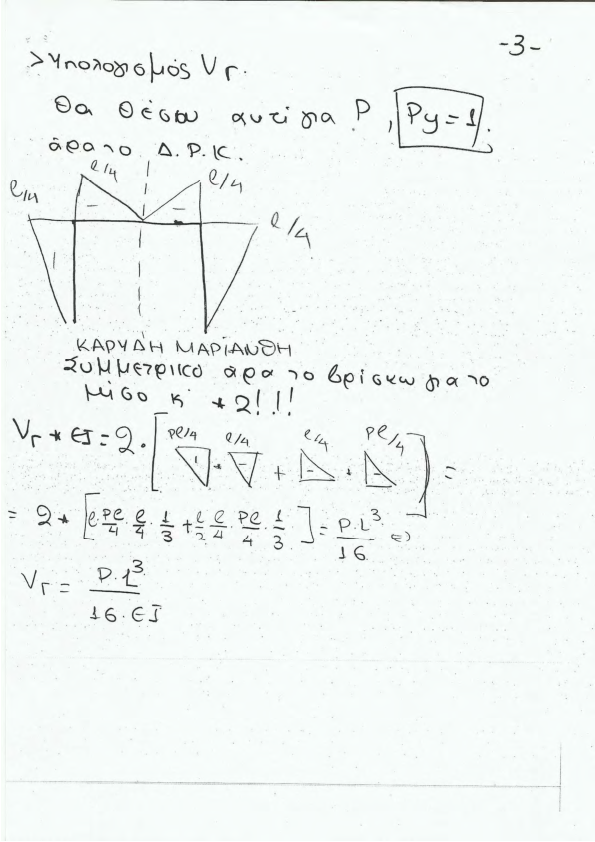 -3-
>Υπολογισμός Vr.
Θα θέσω αντί για P, Py=1.
άρα το Δ.Ρ.Κ.
l/4 l/4 l/4 l/4
− −
ΚΑΡΥΔΗ ΜΑΡΙΑΝΘΗ
Συμμετρικό άρα το βρίσκω για το
μισο κ' *2!!!
Pl/4 l/4 l/4 Pl/4
Vr * EI = 2 · [ * + * ] =
= 2 * [l Pl/4 · l/4 · 1/3 + l/2 l/4 · Pl/4 · 1/3] = P·L³/16 =>
Vr = P·L³/16·EI